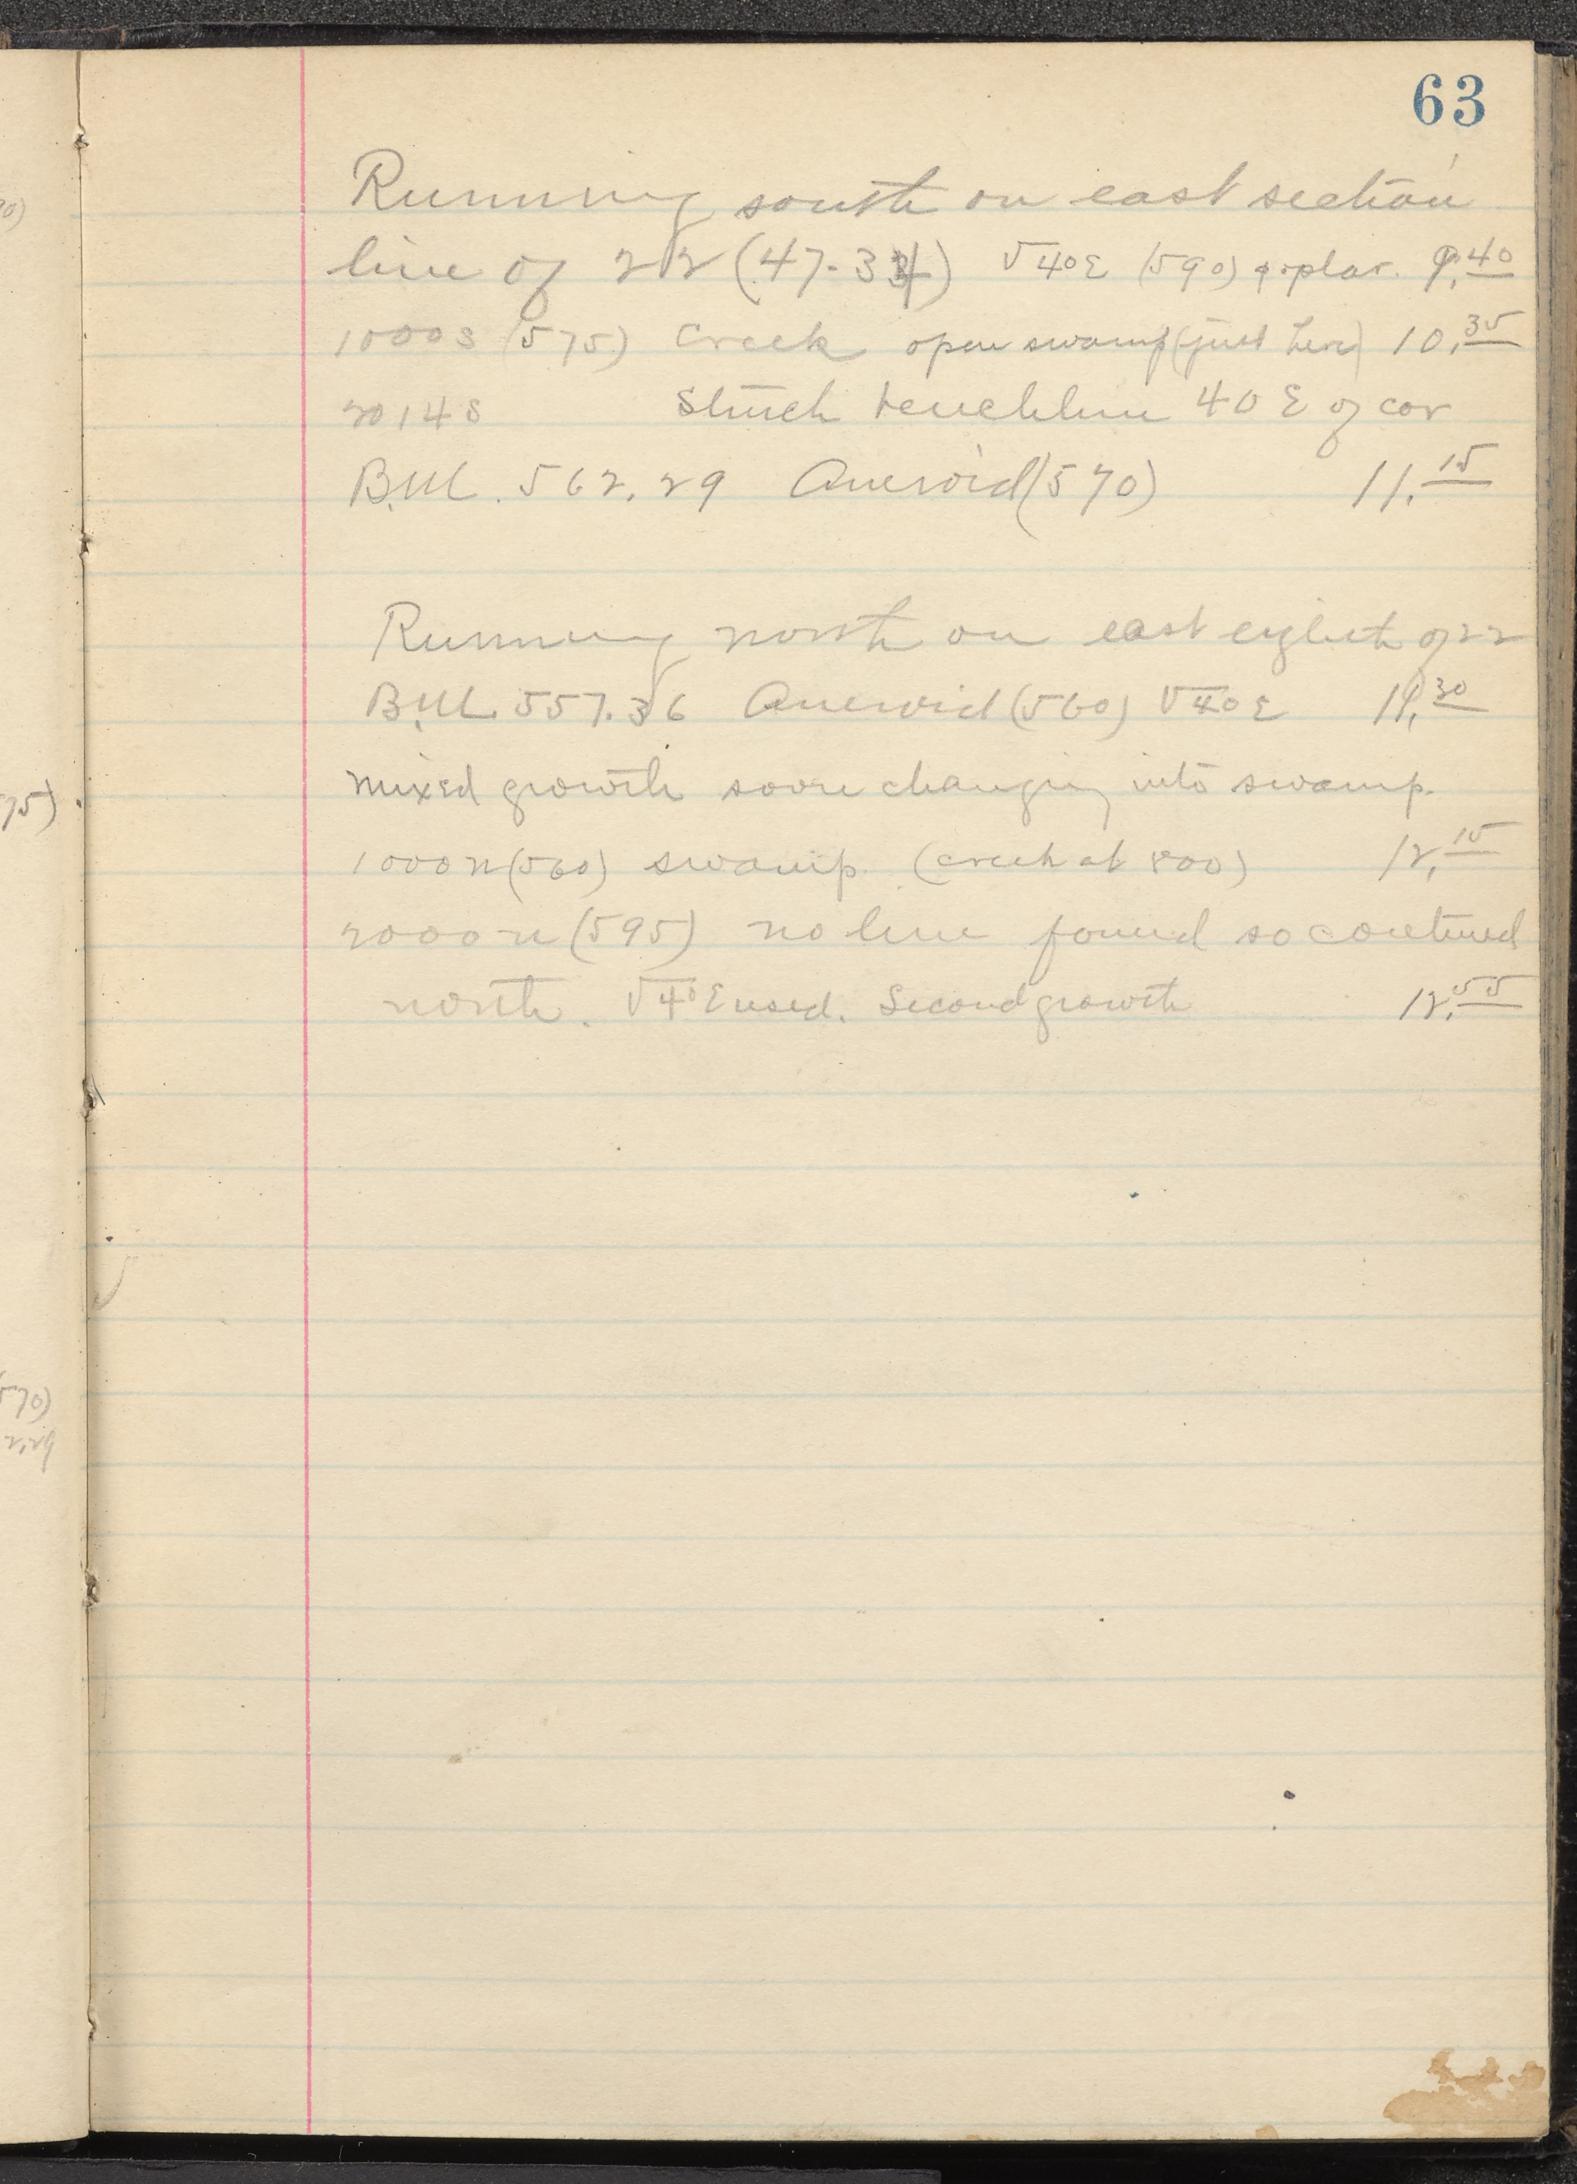 63
Running south on east section
line of 22 (47-34) V 40 E (590) poplar. 9.40
1000 S (575) Creek open swamp (just here) 10.35
2014 S Struck benchline 40 E of cor
B.M. 562.29 Aneroid (570) 11.15
Running north on east eighth of 22
B.M. 557.36 Aneroid (560) V 40 E 11.30
mixed growth soon changing into swamp.
1000 N (560) swamp. (creek at 800) 12.15
2000 N (595) no line found so continued
north. V 4° E used. Second growth 12.55
75)
570)